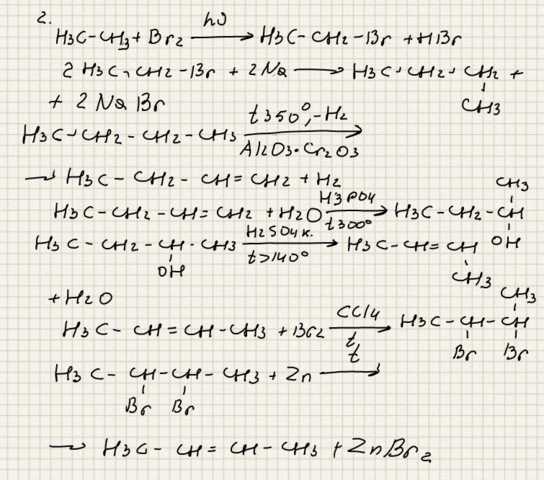 2.
H3C-CH3 + Br2 hυ → H3C-CH2-Br + HBr
2 H3C-CH2-Br + 2Na → H3C-CH2-CH2 +
CH3
+ 2NaBr
H3C-CH2-CH2-CH3 t350°,-H2 →
Al2O3·Cr2O3
→ H3C-CH2-CH=CH2 + H2
CH3
H3C-CH2-CH=CH2 + H2O H3PO4 → H3C-CH2-CH
t300°
OH
H3C-CH2-CH-CH3 H2SO4 к. → H3C-CH=CH
OH t>140° CH3
+ H2O
CH3
H3C-CH=CH-CH3 + Br2 CCl4 → H3C-CH-CH
t Br Br
H3C-CH-CH-CH3 + Zn t →
Br Br
→ H3C-CH=CH-CH3 + ZnBr2